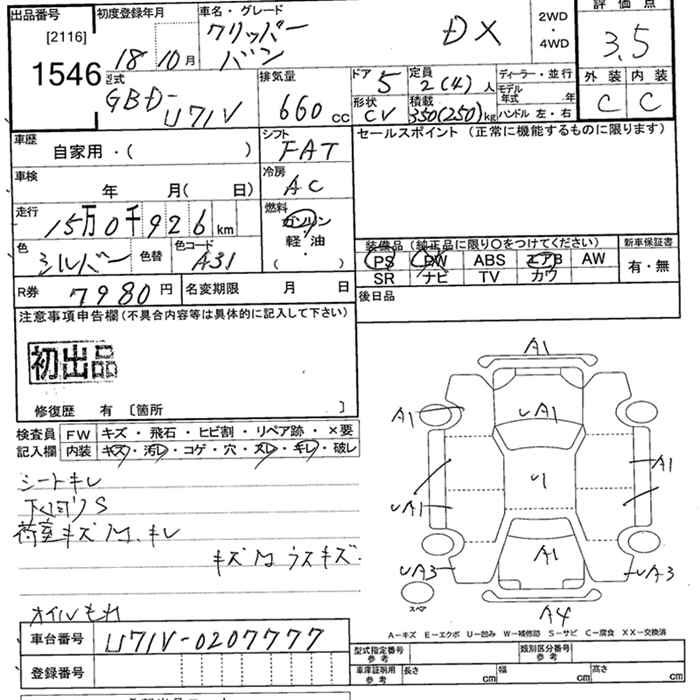 出品番号 [2116] 1546
初度登録年月 18 10 月
車名・グレード クリッパー バン DX
2WD・4WD
評価点 3.5
外装 C 内装 C
型式 GBD-U71V
排気量 660 CC
ドア 5
形状 CV
定員 2(4) 人
積載 350(250) kg
ディーラー・並行
モデル年式 年
ハンドル 左・右
車歴 自家用・( )
シフト FAT
セールスポイント (正常に機能するものに限ります)
車検 年 月( 日)
冷房 AC
走行 15万0千926 km
燃料 ガソリン 軽油 ・ ( )
色 シルバー 色替
色コード A31
装備品 (純正品に限り○をつけてください)
PS PW ABS エアB AW
SR ナビ TV カワ
新車保証書 有・無
R券 7980 円
名変期限 月 日
後日品
注意事項申告欄 (不具合内容等は具体的に記入して下さい)
初出品
修復歴 有 [箇所 ]
検査員記入欄
FW キズ・飛石・ヒビ割・リペア跡・×要
内装 キズ・汚レ・コゲ・穴・スレ・キレ・破レ
シートキレ
下回りS
荷室キズM、キレ
キズM ウスキズ
オイルもれ
A1
UA1
A1
U
A1
UA1
A1
UA3
UA3
スペア
A4
A-キズ E-エクボ U-凹み W-補修跡 S-サビ C-腐食 XX-交換済
車台番号 U71V-0207777
登録番号
型式指定番号 参考
類別区分番号 参考
車庫証明用 参考 長さ cm 幅 cm 高さ cm